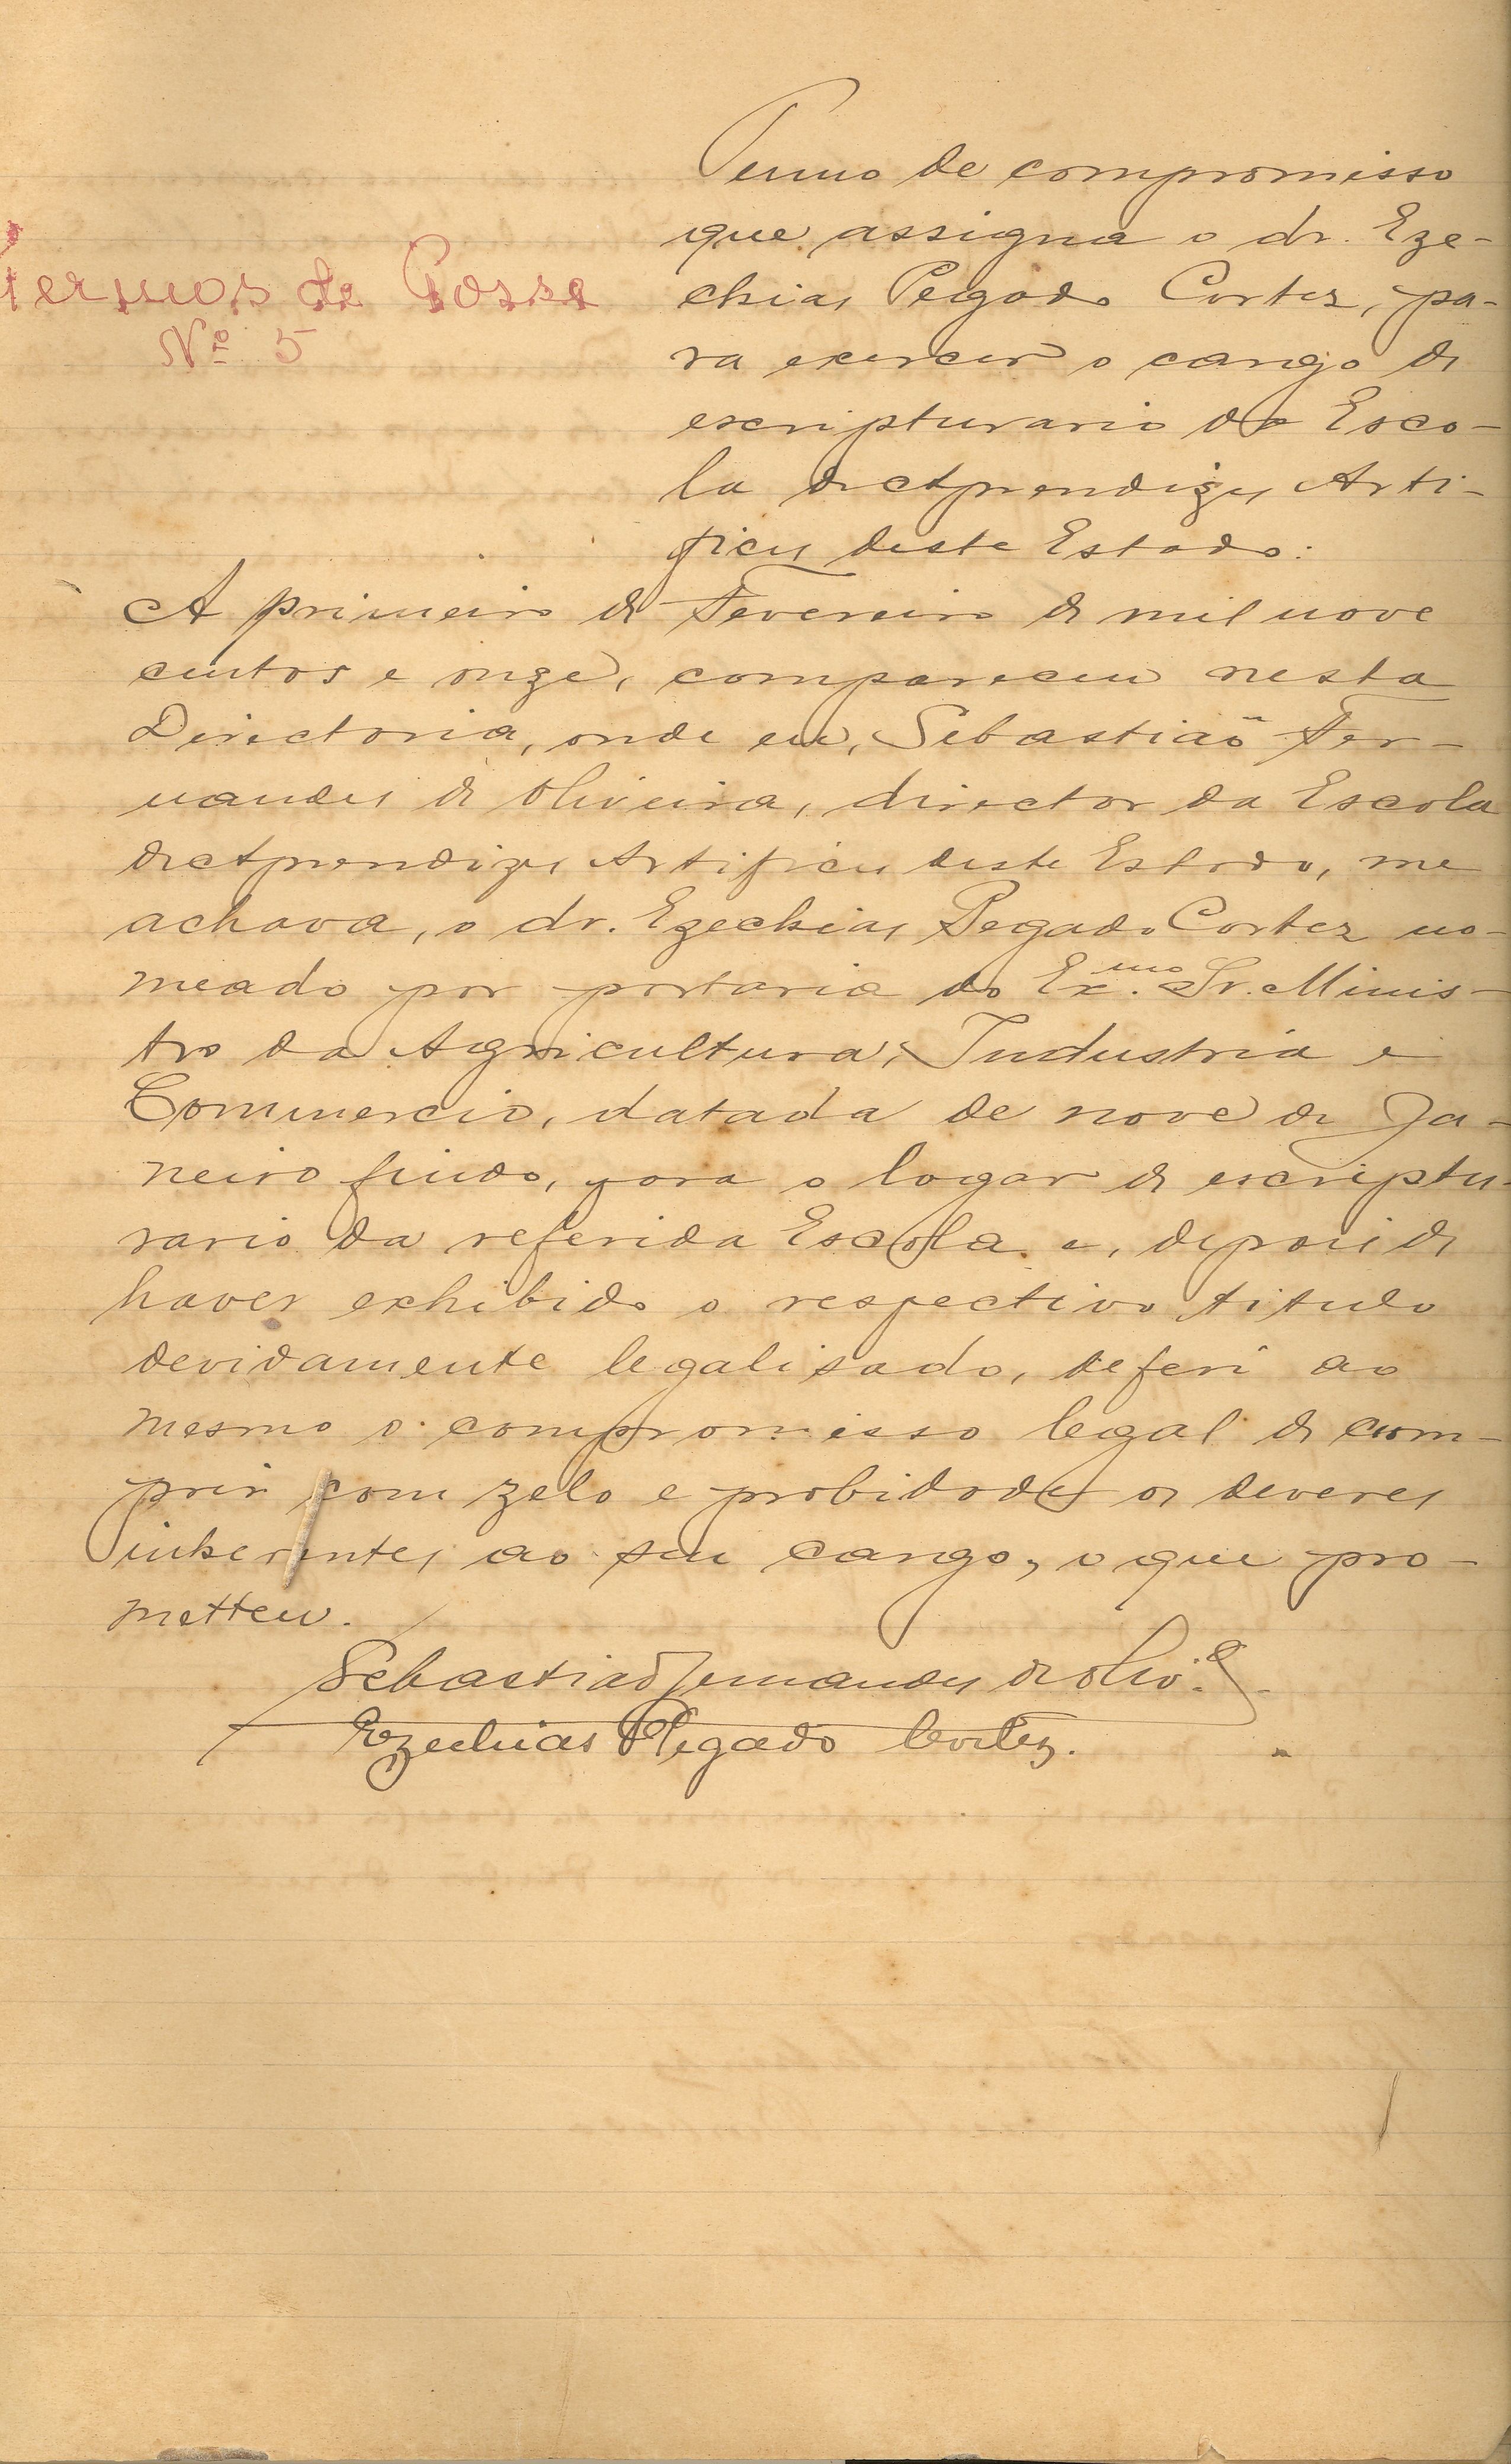 Termo de compromisso
que assigna o dr. Eze-
chias Pegado Cortez, pa-
ra exercer o cargo de
escripturario da Esco-
la de Aprendizes Arti-
fices deste Estado.
Termos de Posse
Nº 5
A primeiro de Fevereiro de mil nove
centos e onze, compareceu nesta
Directoria, onde eu, Sebastião Fer-
nandes de Oliveira, director da Escola
de Aprendizes Artifices deste Estado, me
achava, o dr. Ezechias Pegado Cortez no-
meado por portaria do Ex.mo Sr. Minis-
tro da Agricultura, Industria e
Commercio, datada de nove de Ja-
neiro findo, para o logar de escriptu-
rario da referida Escola e, depois de
haver exhibido o respectivo titulo
devidamente legalisado, deferi ao
mesmo o compromisso legal de cum-
prir com zelo e probidade os deveres
inherentes ao seu cargo, o que pro-
metteu.
Sebastião Fernandes de Oliv.ª
Ezechias Pegado Cortez.